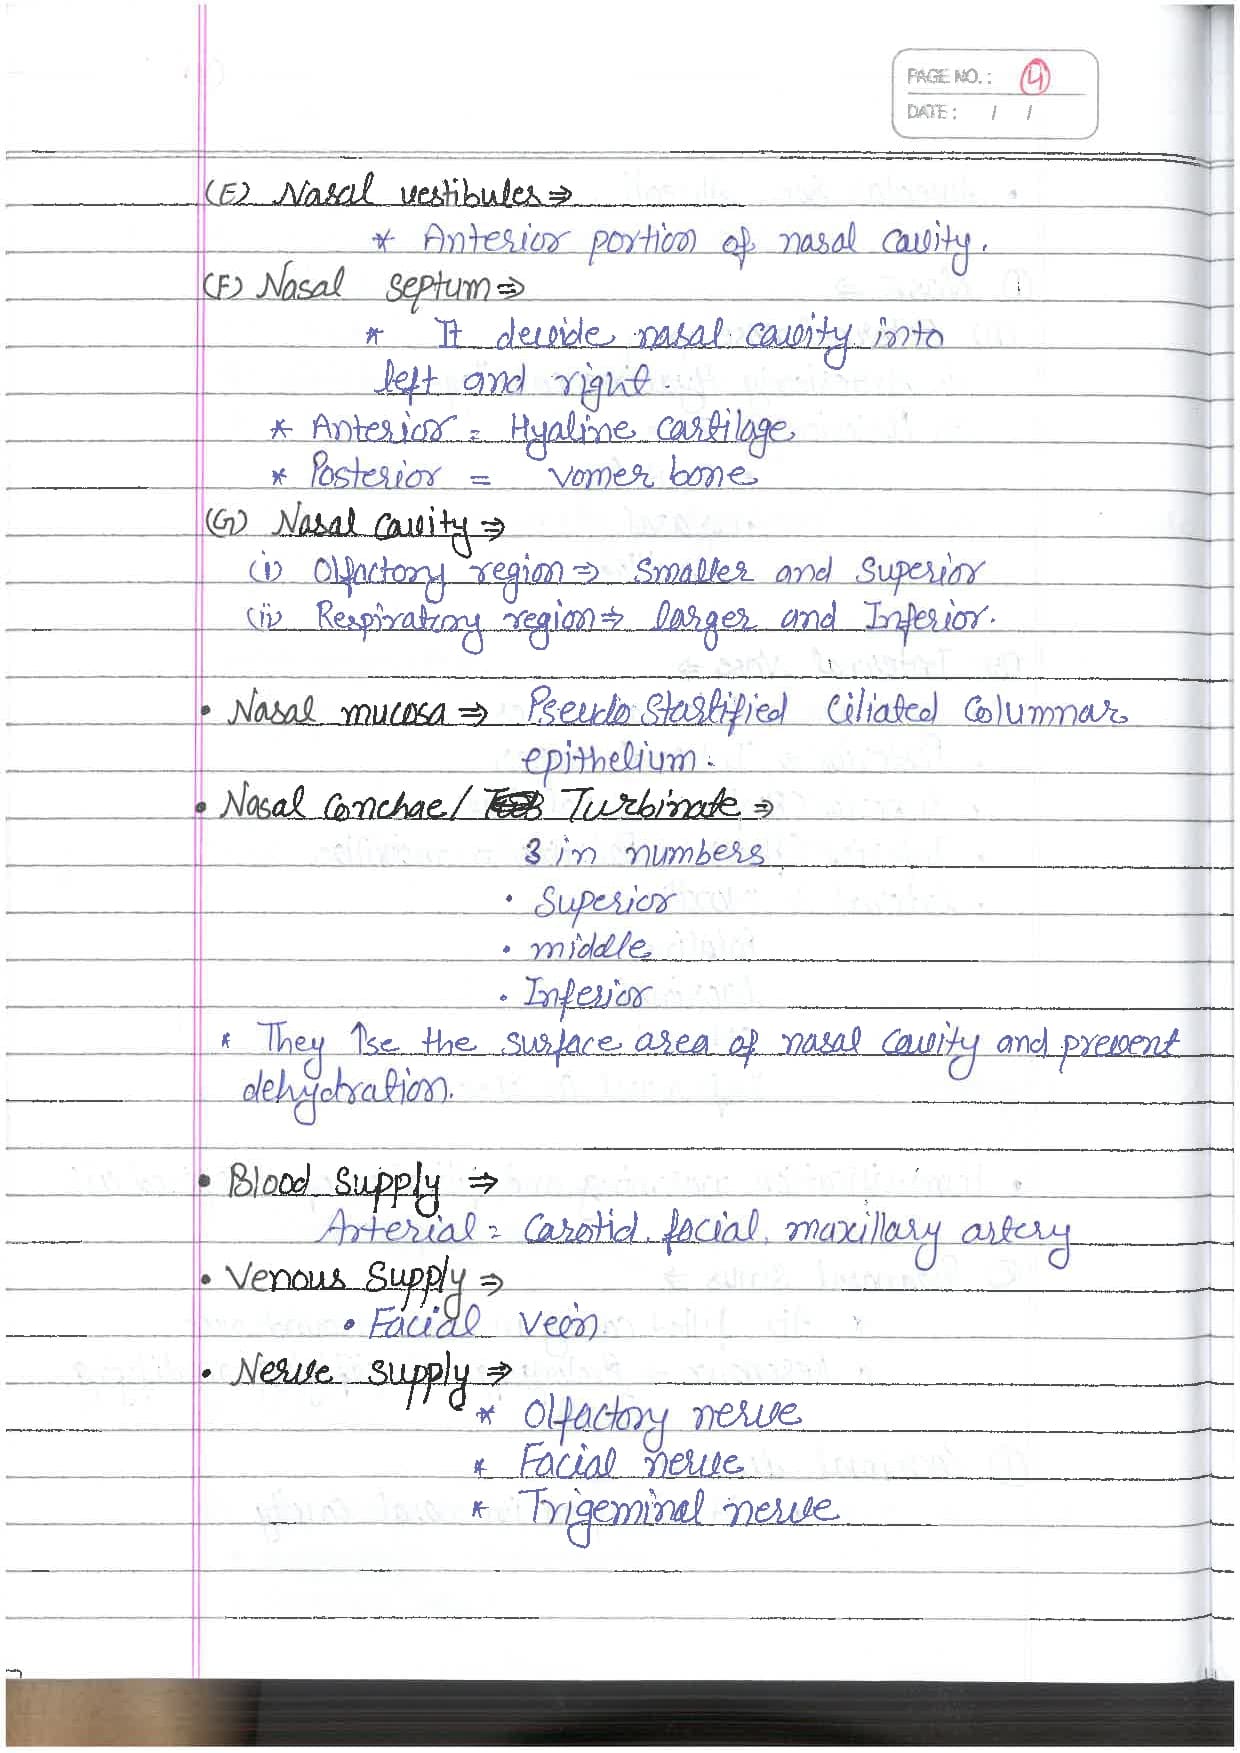 PAGE NO.: 4
DATE: / /
(E) Nasal vestibules ⇒
* Anterior portion of nasal cavity.
(F) Nasal septum ⇒
* It devide nasal cavity into
left and right.
* Anterior = Hyaline cartilage
* Posterior = vomer bone
(G) Nasal cavity ⇒
(i) Olfactory region ⇒ Smaller and Superior
(ii) Respiratory region ⇒ larger and Inferior.
• Nasal mucosa ⇒ Pseudo Startified Ciliated Columnar
epithelium.
• Nasal Conchae/ Turbinate ⇒
3 in numbers
• Superior
• middle
• Inferior
* They ↑se the surface area of nasal cavity and prevent
dehydration.
• Blood supply ⇒
Arterial = Carotid, facial, maxillary artery
• Venous Supply ⇒
• Facial vein
• Nerve supply ⇒
* Olfactory nerve
* Facial nerve
* Trigeminal nerve